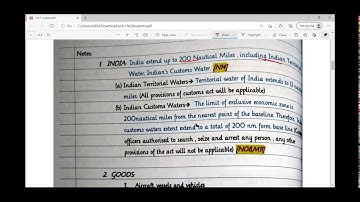 Notes:
1 INDIA: India extend up to 200 Nautical Miles, including Indian
Water; Indian's Customs Water [NM]
(a) Indian Territorial Waters→ Territorial water of India extends to 12
miles (All provisions of customs act will be applicable)
(b) Indian Customs Waters→ The limit of exclusive economic zone is
200nautical miles from the nearest point of the baseline. Therefore,
customs waters extent extends to a total of 200 nm form base line.
officers authorised to search, seize and arrest any person, any other
provisions of the act will not be applicable)
2 GOODS:
I. Aircraft vessels and vehicles